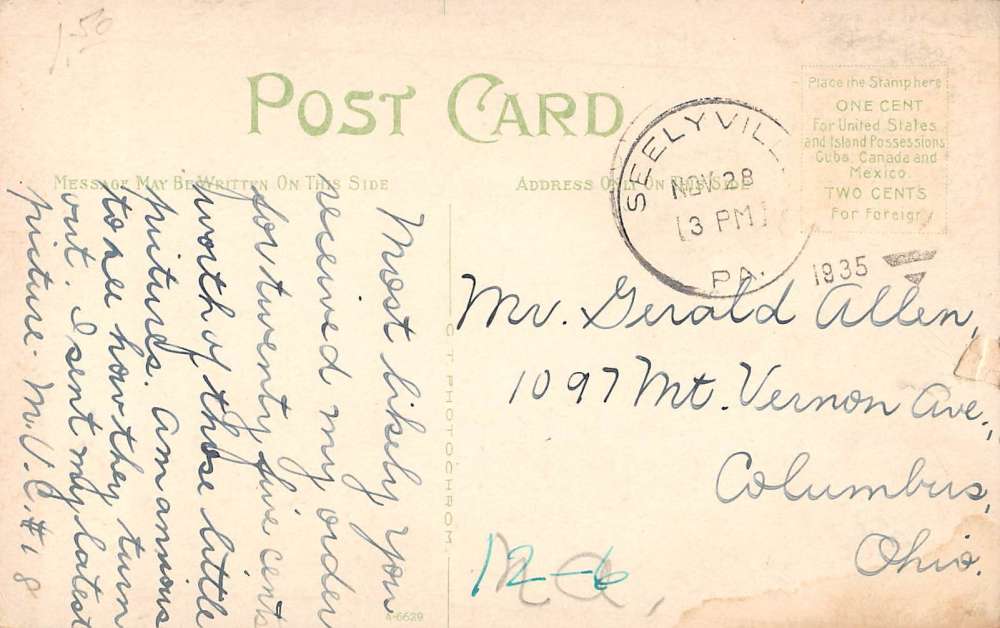 1.50
POST CARD
Place the Stamp here
ONE CENT
For United States
and Island Possessions
Cuba, Canada and
Mexico.
TWO CENTS
For Foreign
MESSAGE MAY BE WRITTEN ON THIS SIDE
ADDRESS ONLY ON THIS SIDE
SEELYVILL
NOV 28
3 PM
PA.
1935
Most likely you
received my order
for twenty five cents
worth of those little
pitures. Am anxious
to see how they turn
out. I sent my latest
picture. M.V.C. #18
C T PHOTOCHROM
Mr. Gerald Allen,
1097 Mt. Vernon Ave.,
Columbus,
Ohio.
12-6
A-6629